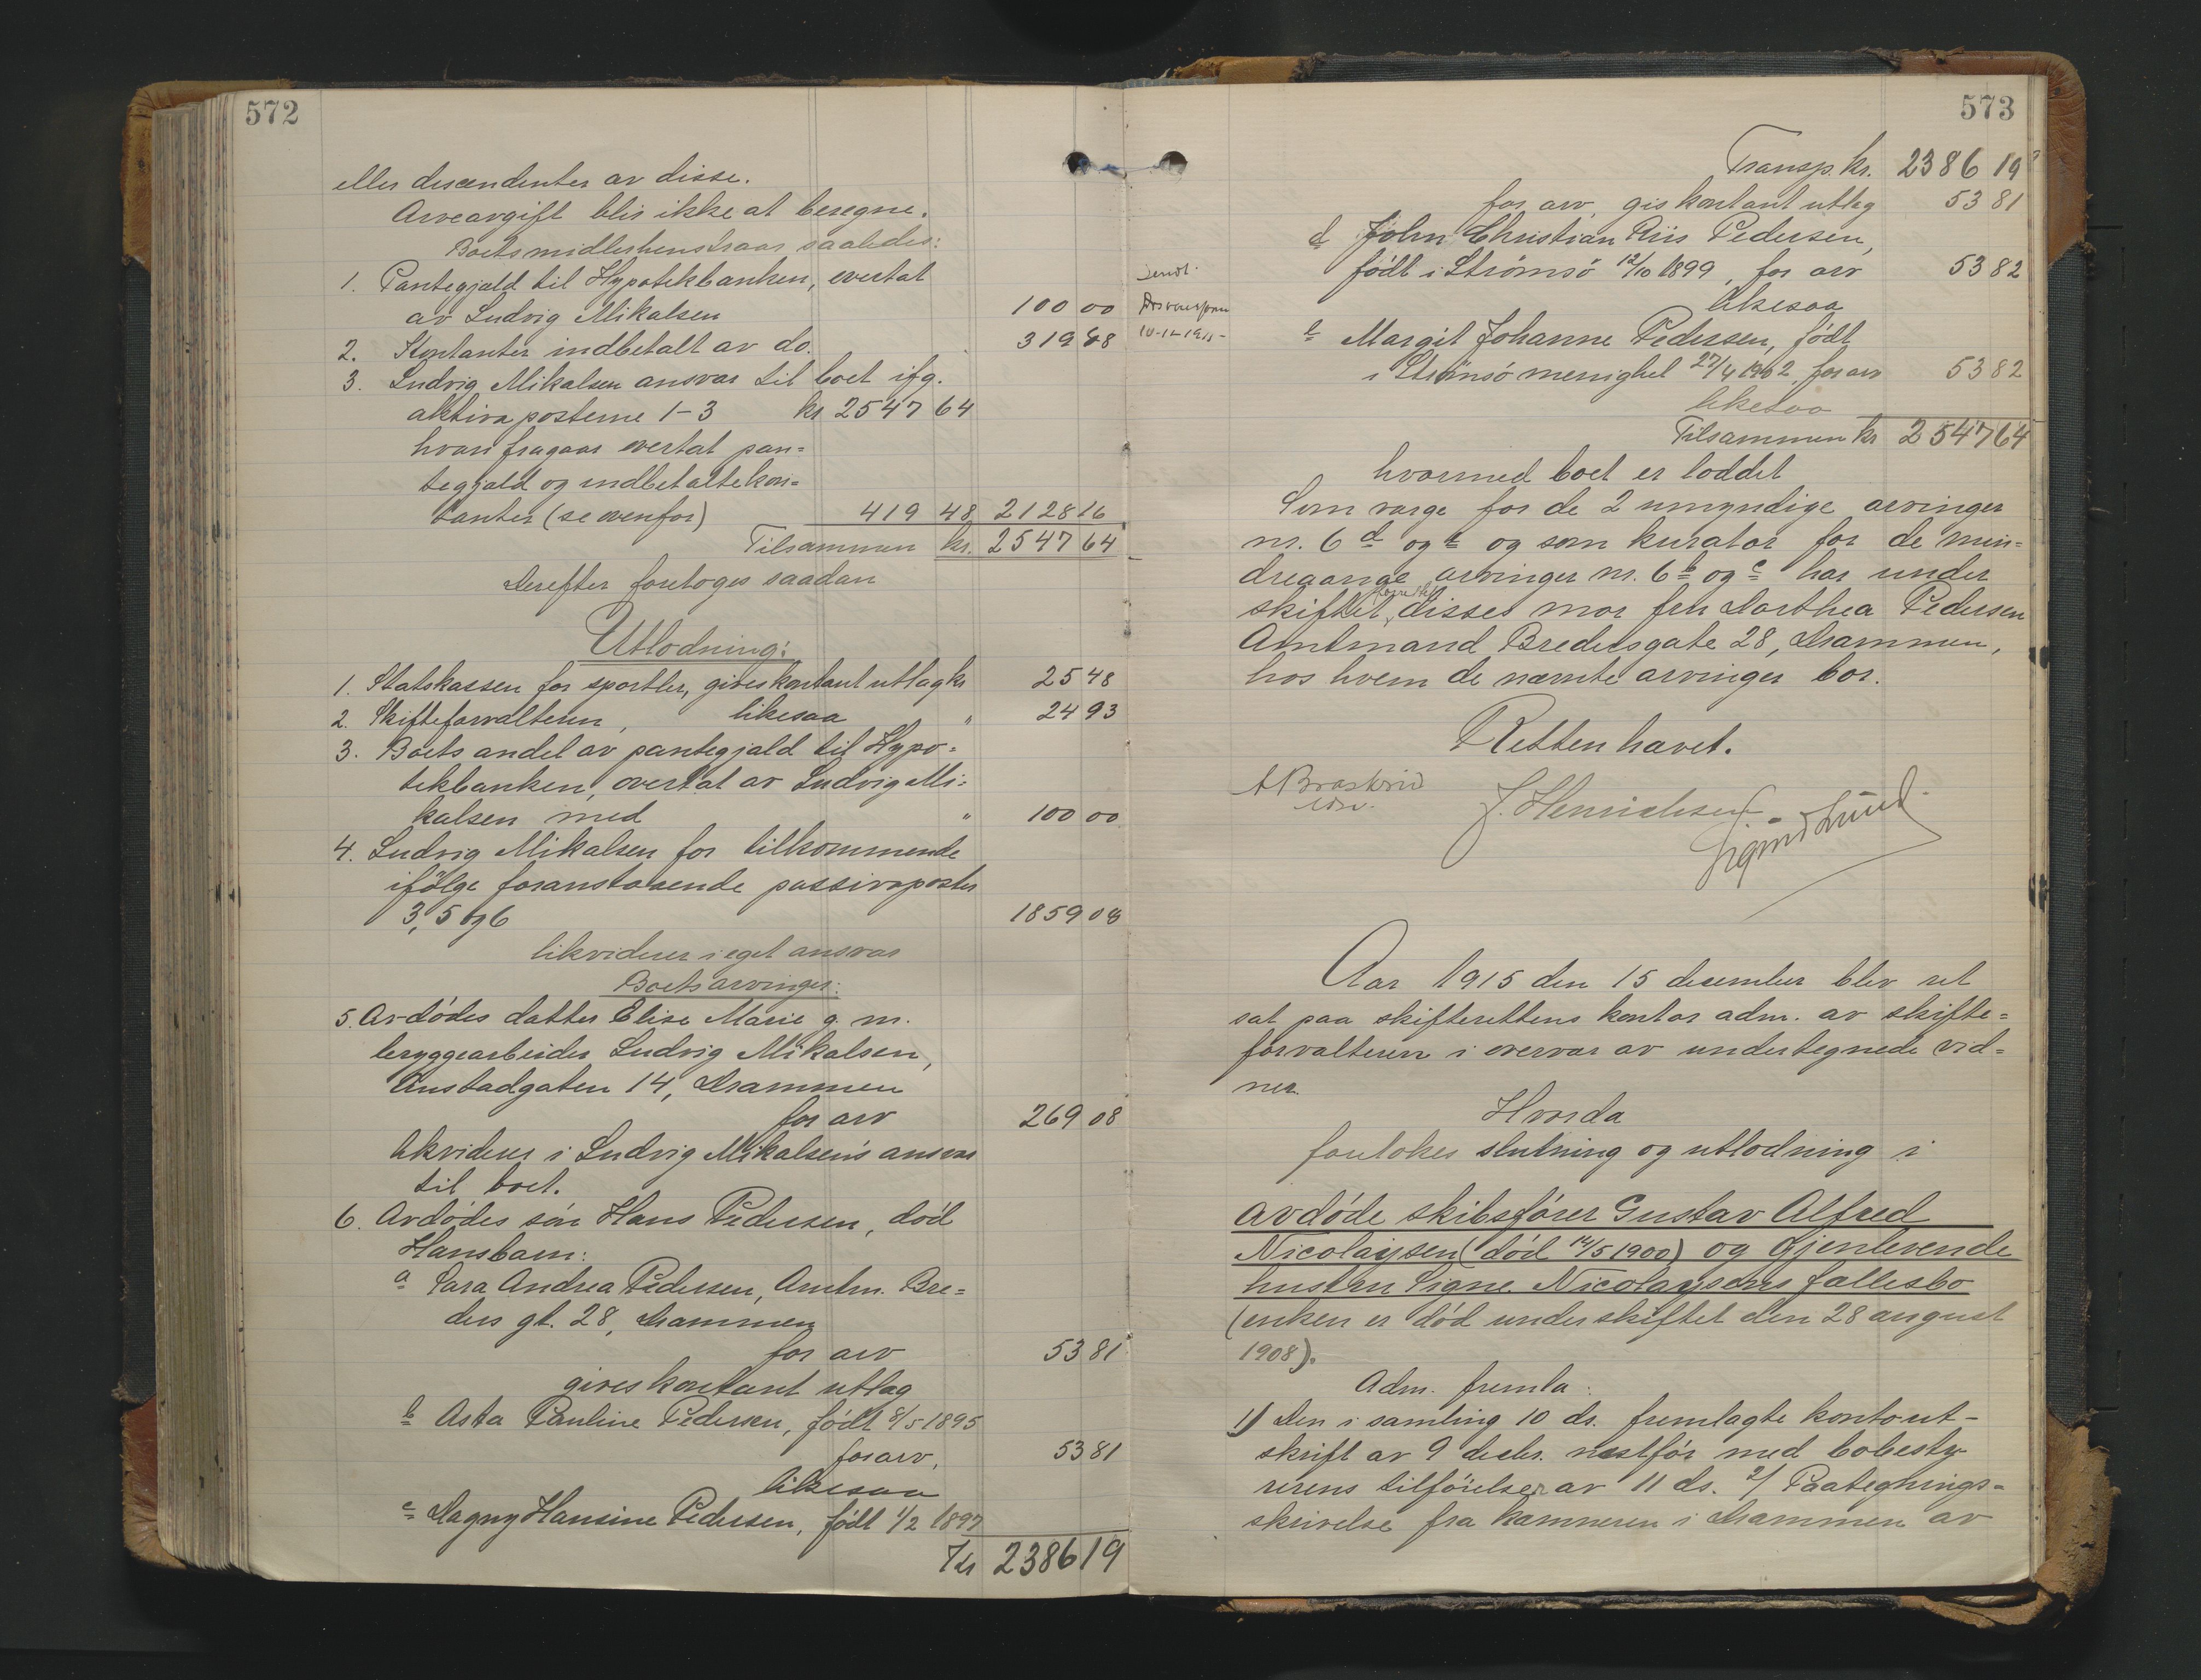 572
eller descendenter av disse.
Arveavgift blir ikke at beregne.
Boets midler henstaar saaledes:
1. Pantegjæld til Hypotekbanken, overtat
av Ludvig Mikalsen 100 00
2. Kontanter indbetalt av do. 319 48
3. Ludvig Mikalsen ansvar til boet ifg.
aktivaposterne 1-3 kr 2547 64
hvori fragaar overtat pan=
tegjæld og indbetalte kon=
tanter (se ovenfor) 419 48 2128 16
Tilsammen kr. 2547 64
Derefter foretoges saadan
Utlodning:
1. Statskassen for sportler, gives kontant utlæg kr 25 48
2. Skifteforvalteren, likesaa " 24 93
3. Boets andel av pantegjæld til Hypo=
tekbanken, overtat av Ludvig Mi=
kalsen med " 100 00
4. Ludvig Mikalsen for tilkommende
ifölge foranstaaende passivaposter
3, 5 og 6 1859 08
likviderer i eget ansvar
Boets arvinger:
5. Avdødes datter Elise Marie g. m.
bryggearbeider Ludvig Mikalsen,
Austadgaten 14, Drammen
for arv 269 08
likviderer i Ludvig Mikalsen's ansvar
til boet.
6. Avdødes søn Hans Pedersen, död
Hans barn:
a Sara Andrea Pedersen, Amtm. Bre=
ders gt. 28, Drammen
for arv 53 81
gives kontant utlæg
b Asta Pauline Pedersen, født 8/5 1895
for arv, 53 81
likesaa
c Dagny Hansine Pedersen, født 1/2 1897
Kr 2386 19
573
Transp. kr. 2386 19
for arv, gis kontant utlæg 53 81
d John Christian Riis Pedersen,
født i Strömsö 12/10 1899, for arv 53 82
likesaa
e Margit Johanne Pedersen, født
i Strömsö menighet 27/4 1902 for arv 53 82
likesaa
Tilsammen kr 2547 64
hvormed boet er loddet
Som verge for de 2 umyndige arvinger
nr. 6 d og e og som kurator for de min=
dreaarige arvinger nr. 6 b og c har under
skiftet disses mor fru Dorthea Pedersen
Amtmand Bredersgate 28, Drammen,
hos hvem de nævnte arvinger bor.
Retten hævet.
J. Henrichsen
Sigurd Lund
Aar 1915 den 15 december blev ret
sat paa skifterettens kontor adm. av skifte=
forvalteren i overvær av undertegnede vid=
ner.
Hvorda
foretokes slutning og utlodning i
avdøde skibsfører Gustav Alfred
Nicolaysen (død 14/5 1900) og gjenlevende
hustru Signe Nicolaysens fællesbo
(enken er død under skiftet den 28 august
1908).
Adm. fremla:
1) Den i samling 10 ds. fremlagte kontout-
skrift av 9 decbr. næstfør med bobesty
rerens tilføielser av 11 ds. 2/ Paategnings=
skrivelse fra kæmneren i Drammen av